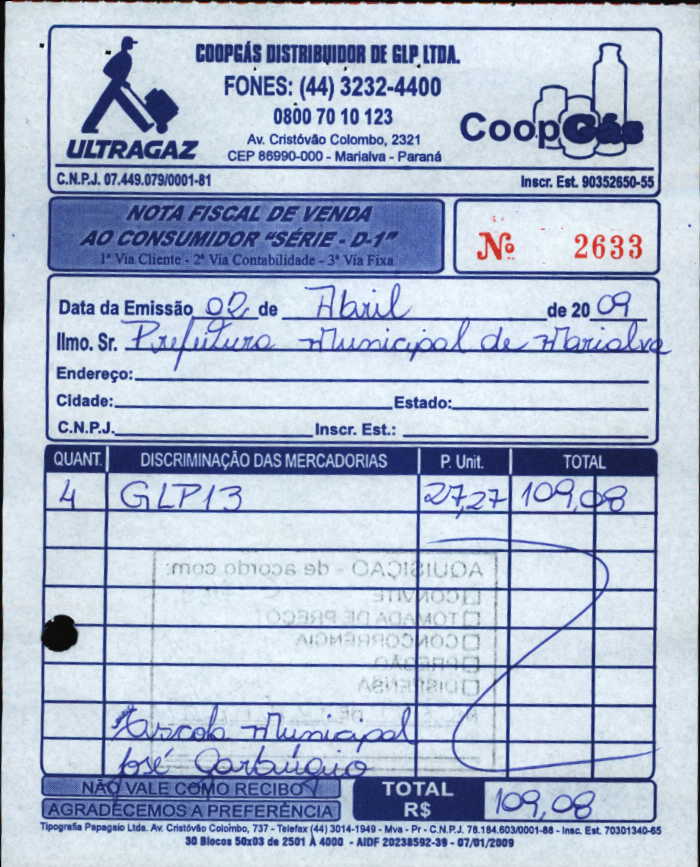 COOPGÁS DISTRIBUIDOR DE GLP LTDA.
FONES: (44) 3232-4400
0800 70 10 123
Av. Cristóvão Colombo, 2321
CEP 86990-000 - Marialva - Paraná
ULTRAGAZ
CoopGás
C.N.P.J. 07.449.079/0001-81 Inscr. Est. 90352650-55
NOTA FISCAL DE VENDA
AO CONSUMIDOR "SÉRIE - D-1"
1ª Via Cliente - 2ª Via Contabilidade - 3ª Via Fixa
Nº 2633
Data da Emissão 02 de Abril de 2009
Ilmo. Sr. Prefeitura Municipal de Marialva
Endereço:
Cidade: Estado:
C.N.P.J. Inscr. Est.:
QUANT. DISCRIMINAÇÃO DAS MERCADORIAS P. Unit. TOTAL
4 GLP13 27,27 109,08
AQUISIÇÃO - de acordo com:
CONVITE
TOMADA DE PREÇO
CONCORRÊNCIA
PREGÃO
DISPENSA
Escola Municipal
José Garbúgio
NÃO VALE COMO RECIBO
AGRADECEMOS A PREFERÊNCIA
TOTAL R$ 109,08
Tipografia Papagaio Ltda. Av. Cristóvão Colombo, 737 - Telefax (44) 3014-1949 - Mva - Pr - C.N.P.J. 78.184.603/0001-88 - Insc. Est. 70301340-65
30 Blocos 50x03 de 2501 À 4000 - AIDF 20238592-39 - 07/01/2009